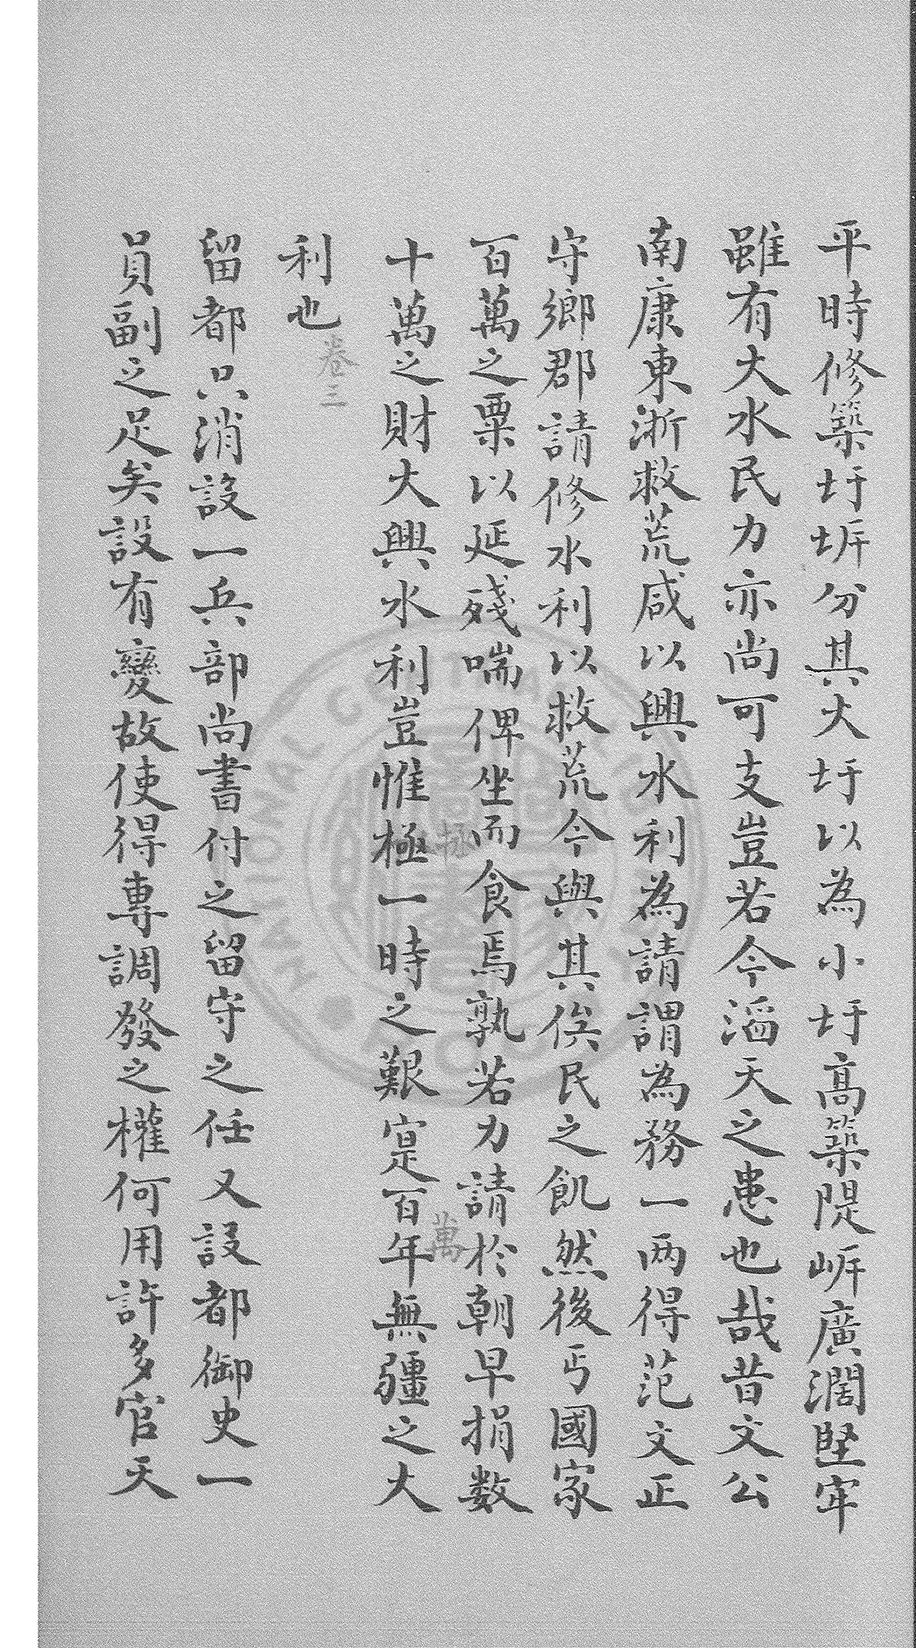 平時修築圩埂分其大圩以為小圩高築隄岍廣濶堅牢
雖有大水民力亦尚可支豈若今滔天之患也哉昔文公
南康東浙救荒咸以興水利為請謂為務一两得范文正
守鄉郡請修水利以救荒今與其俟民之飢然後丐國家
百萬之粟以延殘喘俾坐而食焉孰若力請於朝早捐数
十萬之財大興水利豈惟極一時之艱寔百年無疆之大
拯
萬
利也
卷三
留都只消設一兵部尚書付之留守之任又設都御史一
員副之足矣設有變故使得專調發之權何用許多官天
NATIONAL CENTRAL LIBRARY